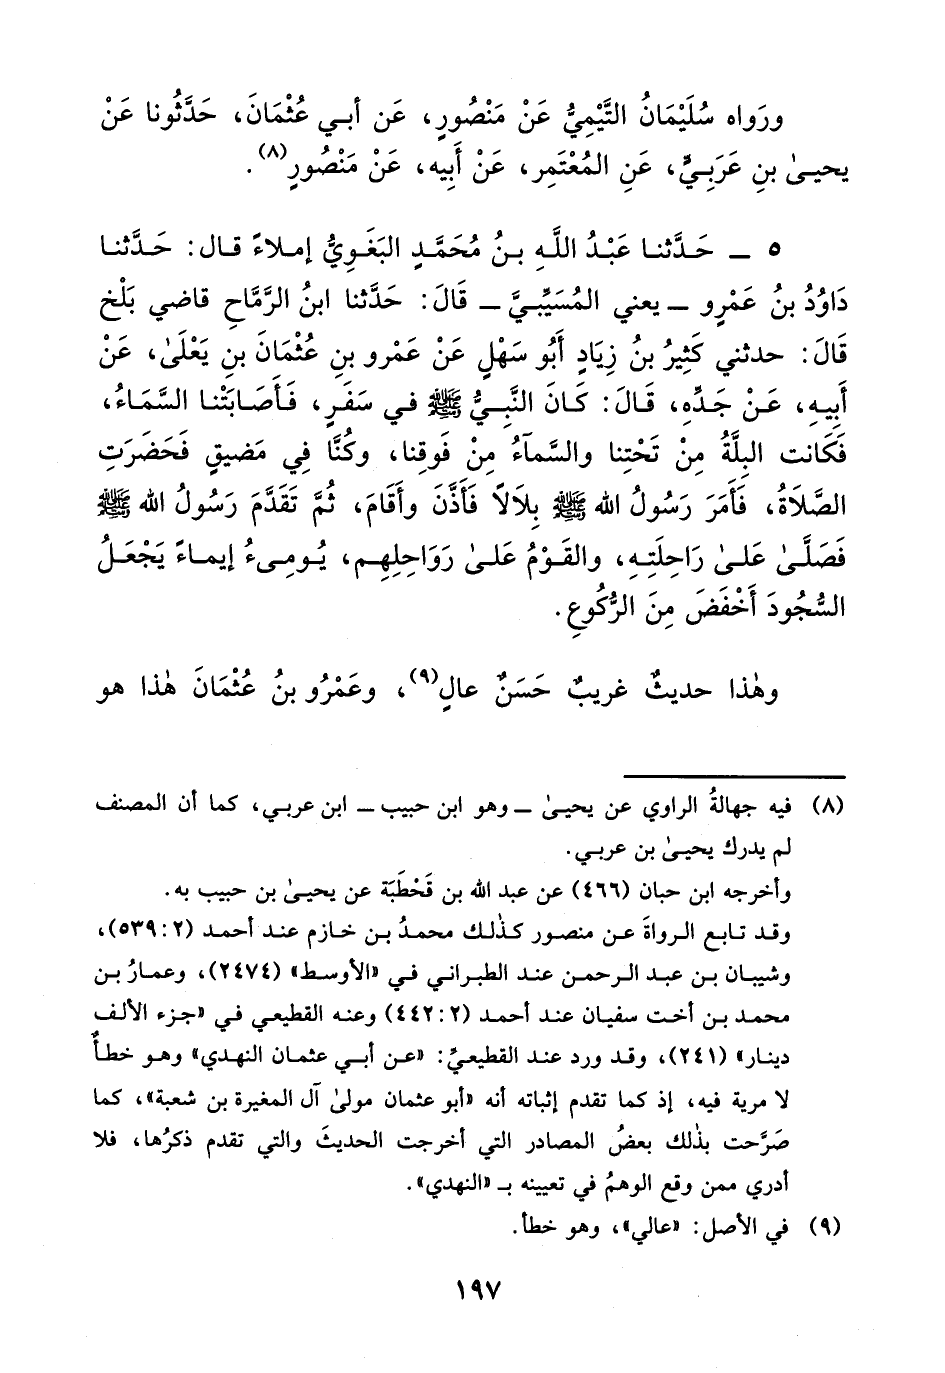 ورَواه سُلَيْمَانُ التَّيْمِيُّ عَنْ مَنْصُورٍ، عَن أبي عُثْمَانَ، حَدَّثُونا عَنْ
يحيىٰ بنِ عَرَبيٍّ، عَنِ المُعْتَمِر، عَنْ أَبِيه، عَنْ مَنْصُورٍ(٨).
٥ ـ حَدَّثنا عَبْدُ اللَّهِ بنُ مُحَمَّدٍ البَغَوِيُّ إملاءً قال: حَدَّثنا
دَاوُدُ بنُ عَمْرٍو ـ يعني المُسَيِّبيَّ ـ قَالَ: حَدَّثنا ابنُ الرَّمَّاحِ قاضي بَلْخ
قَالَ: حدثني كَثِيرُ بنُ زِيَادٍ أَبُو سَهْلٍ عَنْ عَمْرو بنِ عُثْمَانَ بنِ يَعْلَىٰ، عَنْ
أَبِيهِ، عَنْ جَدِّهِ، قَالَ: كَانَ النَّبِيُّ ﷺ في سَفَرٍ، فَأَصَابَتْنا السَّمَاءُ،
فَكَانت البِلَّةُ مِنْ تَحْتِنا والسَّمآءُ مِنْ فَوقِنا، وكُنَّا فِي مَضيقٍ فَحَضَرَتِ
الصَّلَاةُ، فَأَمَرَ رَسُولُ الله ﷺ بِلَالاً فَأَذَّنَ وأَقَامَ، ثُمَّ تَقَدَّمَ رَسُولُ الله ﷺ
فَصَلَّىٰ عَلىٰ رَاحِلَتِهِ، والقَوْمُ عَلىٰ رَوَاحِلِهِم، يُومِىءُ إيماءً يَجْعَلُ
السُّجُودَ أَخْفَضَ مِنَ الرُّكُوعِ.
وهٰذا حديثٌ غريبٌ حَسَنٌ عالٍ(٩)، وعَمْرُو بنُ عُثْمَانَ هٰذا هو
(٨) فيه جهالةُ الراوي عن يحيىٰ ـ وهو ابن حبيب ـ ابن عربي، كما أن المصنف
لم يدرك يحيىٰ بن عربي.
وأخرجه ابن حبان (٤٦٦) عن عبد الله بن قَحْطَبَة عن يحيىٰ بن حبيب به.
وقد تابع الرواةَ عن منصور كذٰلك محمدُ بن خازم عند أحمد (٢:٥٣٩)،
وشيبان بن عبد الرحمن عند الطبراني في «الأوسط» (٢٤٧٤)، وعمارُ بن
محمد بن أخت سفيان عند أحمد (٢:٤٤٢) وعنه القطيعي في «جزء الألف
دينار» (٢٤١)، وقد ورد عند القطيعيِّ: «عن أبي عثمان النهدي» وهو خطأٌ
لا مرية فيه، إذ كما تقدم إثباته أنه «أبو عثمان مولىٰ آل المغيرة بن شعبة»، كما
صَرَّحت بذٰلك بعضُ المصادر التي أخرجت الحديثَ والتي تقدم ذكرُها، فلا
أدري ممن وقع الوهمُ في تعيينه بـ «النهدي».
(٩) في الأصل: «عالي»، وهو خطأ.
١٩٧